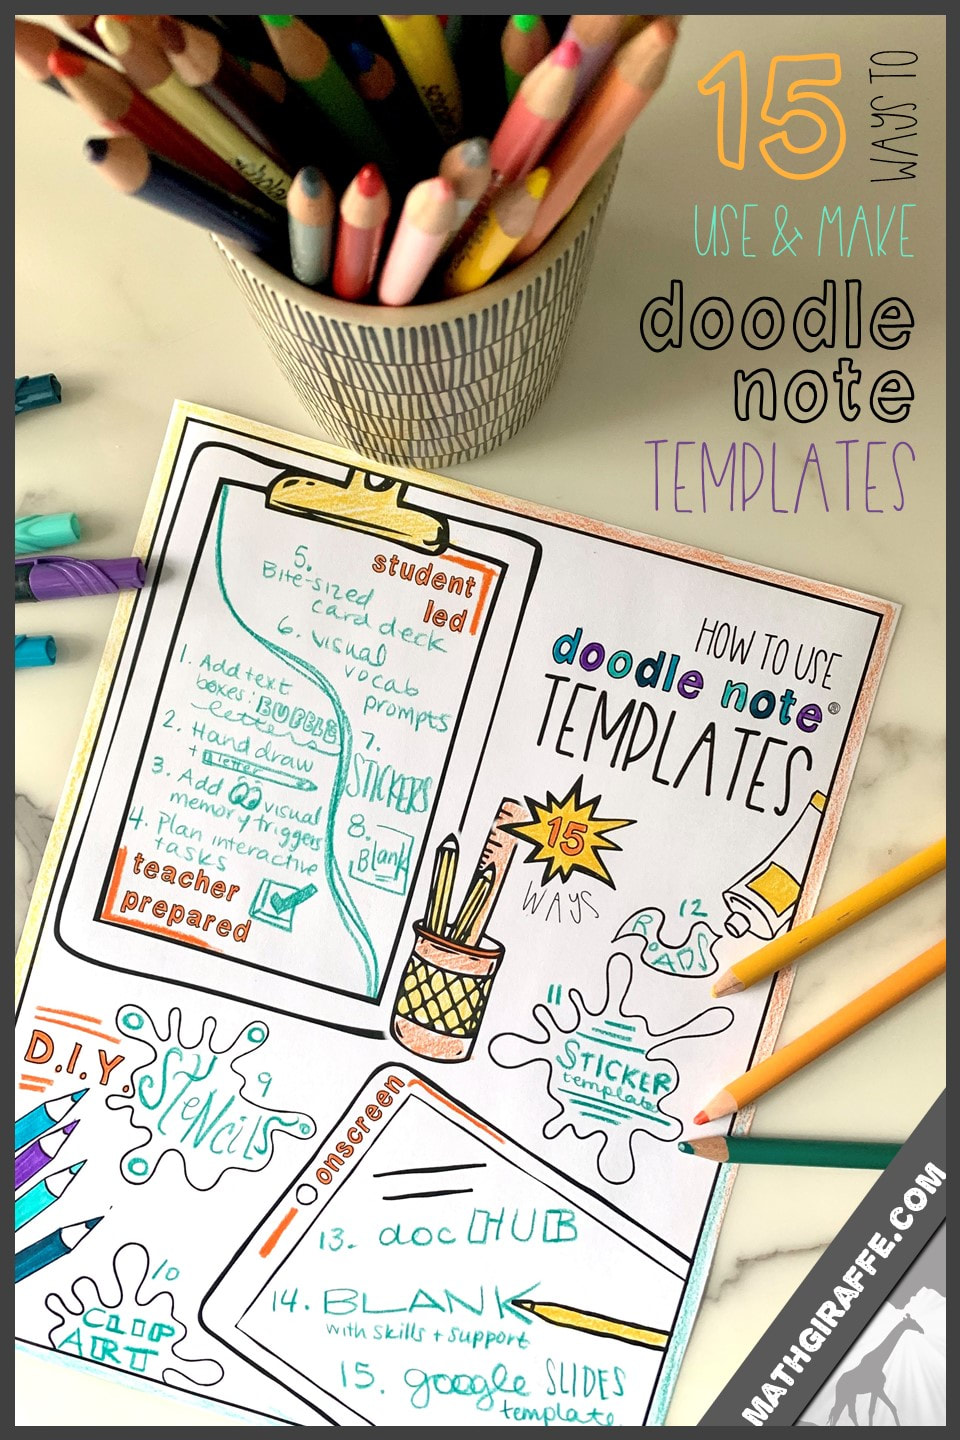 15 WAYS TO
USE & MAKE
doodle
note
TEMPLATES
HOW TO USE
doodle note®
TEMPLATES
15
WAYS
student
led
5.
Bite-sized
card deck
6. visual
vocab
prompts
7.
STICKERS
8.
Blank
1. Add text
boxes: BUBBLE
letters
2. Hand draw
+ letter
3. Add visual
memory triggers
4. Plan interactive
tasks
teacher
prepared
D.I.Y.
9
STENCILS
10
CLIP
ART
11
STICKER
template
12
ROADS
onscreen
13. doc HUB
14. BLANK
with skills + support
15. google SLIDES
template
MATHGIRAFFE.COM